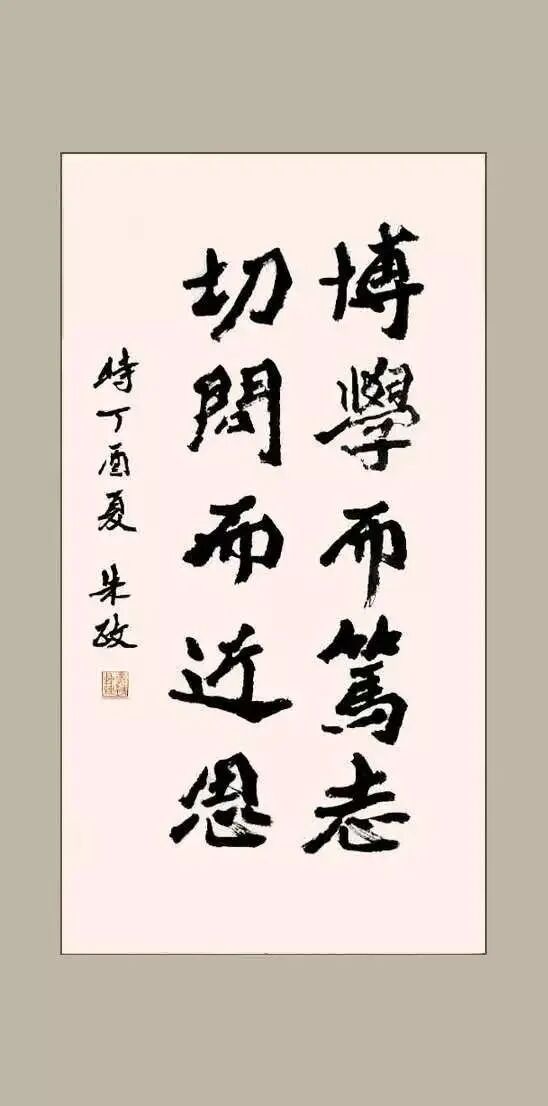 博學而篤志
切問而近思
時丁酉夏 朱政